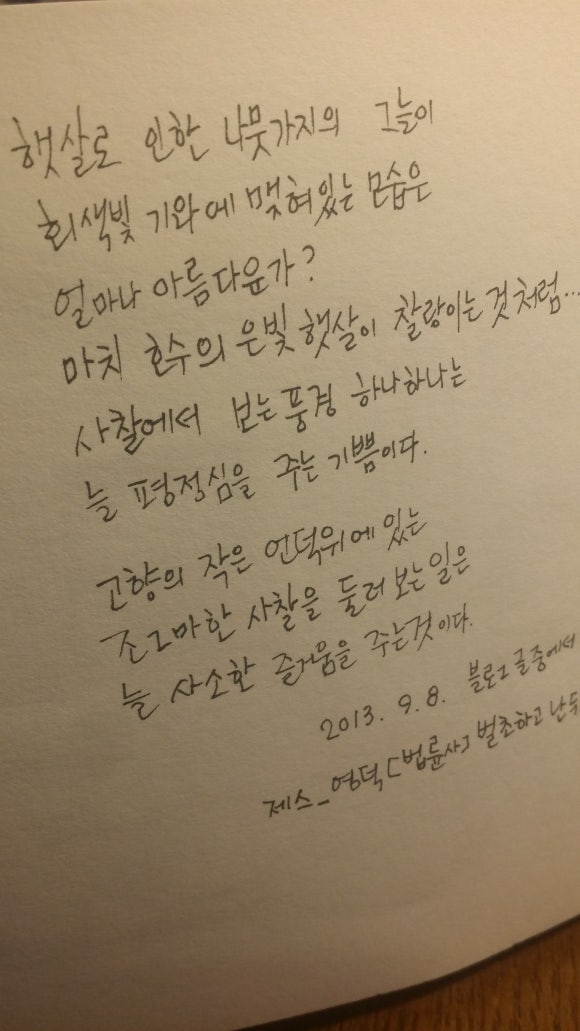 햇살로 인한 나뭇가지의 그늘이
회색빛 기와에 맺혀있는 모습은
얼마나 아름다운가?
마치 호수의 은빛 햇살이 찰랑이는 것처럼...
사찰에서 보는 풍경 하나하나는
늘 평정심을 주는 기쁨이다.
고향의 작은 언덕위에 있는
조그마한 사찰을 둘러 보는 일은
늘 사소한 즐거움을 주는것이다.
2013. 9. 8. 블로그 글중에서
제스_영덕[법륜사] 벌초하고 난 두